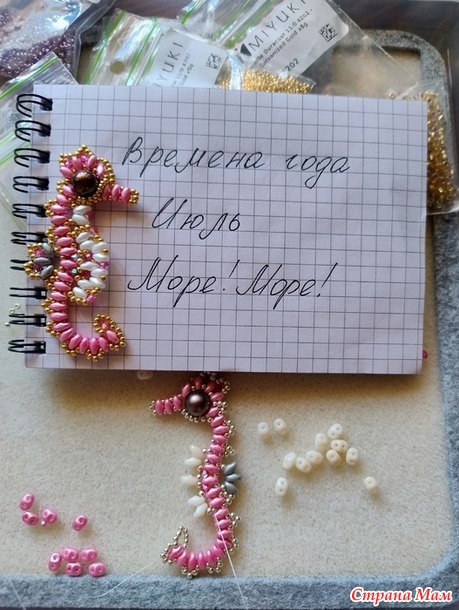 MIYUKI
MIYUKI
202
Времена года
Июль
Море! Море!
Страна Мам